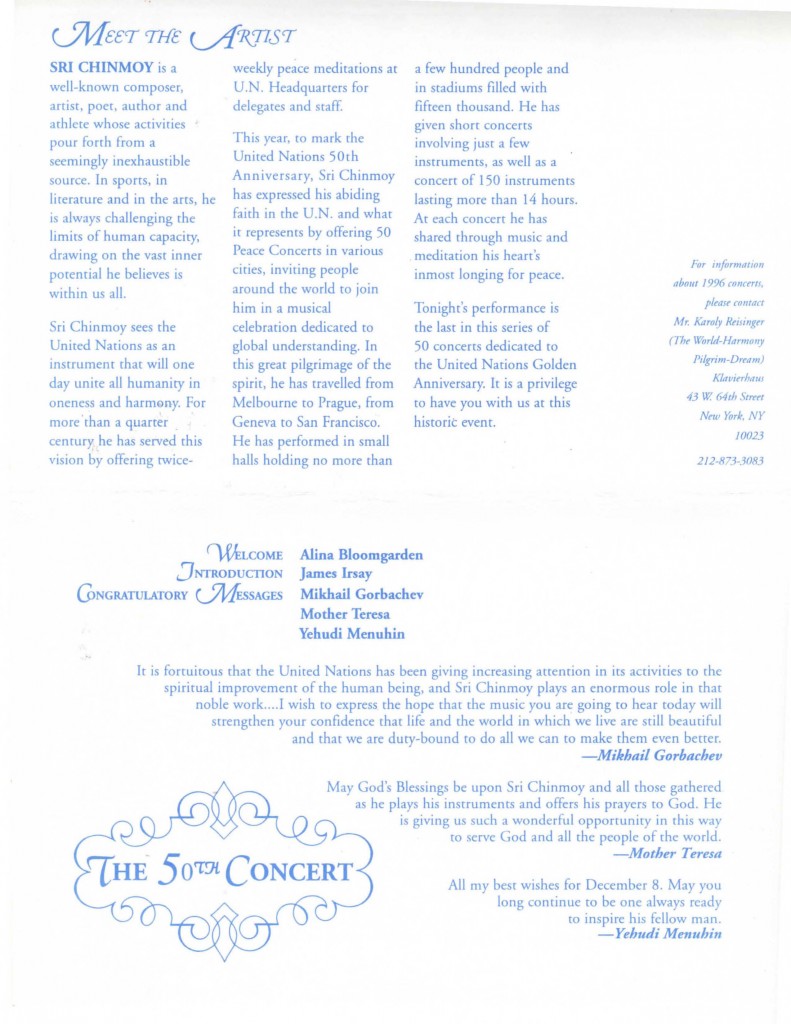 MEET THE ARTIST
SRI CHINMOY is a
well-known composer,
artist, poet, author and
athlete whose activities
pour forth from a
seemingly inexhaustible
source. In sports, in
literature and in the arts, he
is always challenging the
limits of human capacity,
drawing on the vast inner
potential he believes is
within us all.
Sri Chinmoy sees the
United Nations as an
instrument that will one
day unite all humanity in
oneness and harmony. For
more than a quarter
century he has served this
vision by offering twice-
weekly peace meditations at
U.N. Headquarters for
delegates and staff.
This year, to mark the
United Nations 50th
Anniversary, Sri Chinmoy
has expressed his abiding
faith in the U.N. and what
it represents by offering 50
Peace Concerts in various
cities, inviting people
around the world to join
him in a musical
celebration dedicated to
global understanding. In
this great pilgrimage of the
spirit, he has travelled from
Melbourne to Prague, from
Geneva to San Francisco.
He has performed in small
halls holding no more than
a few hundred people and
in stadiums filled with
fifteen thousand. He has
given short concerts
involving just a few
instruments, as well as a
concert of 150 instruments
lasting more than 14 hours.
At each concert he has
shared through music and
meditation his heart's
inmost longing for peace.
Tonight's performance is
the last in this series of
50 concerts dedicated to
the United Nations Golden
Anniversary. It is a privilege
to have you with us at this
historic event.
For information
about 1996 concerts,
please contact
Mr. Karoly Reisinger
(The World-Harmony
Pilgrim-Dream)
Klavierhaus
43 W. 64th Street
New York, NY
10023
212-873-3083
WELCOME Alina Bloomgarden
INTRODUCTION James Irsay
CONGRATULATORY MESSAGES Mikhail Gorbachev
Mother Teresa
Yehudi Menuhin
It is fortuitous that the United Nations has been giving increasing attention in its activities to the
spiritual improvement of the human being, and Sri Chinmoy plays an enormous role in that
noble work....I wish to express the hope that the music you are going to hear today will
strengthen your confidence that life and the world in which we live are still beautiful
and that we are duty-bound to do all we can to make them even better.
—Mikhail Gorbachev
May God's Blessings be upon Sri Chinmoy and all those gathered
as he plays his instruments and offers his prayers to God. He
is giving us such a wonderful opportunity in this way
to serve God and all the people of the world.
—Mother Teresa
THE 50TH CONCERT
All my best wishes for December 8. May you
long continue to be one always ready
to inspire his fellow man.
—Yehudi Menuhin